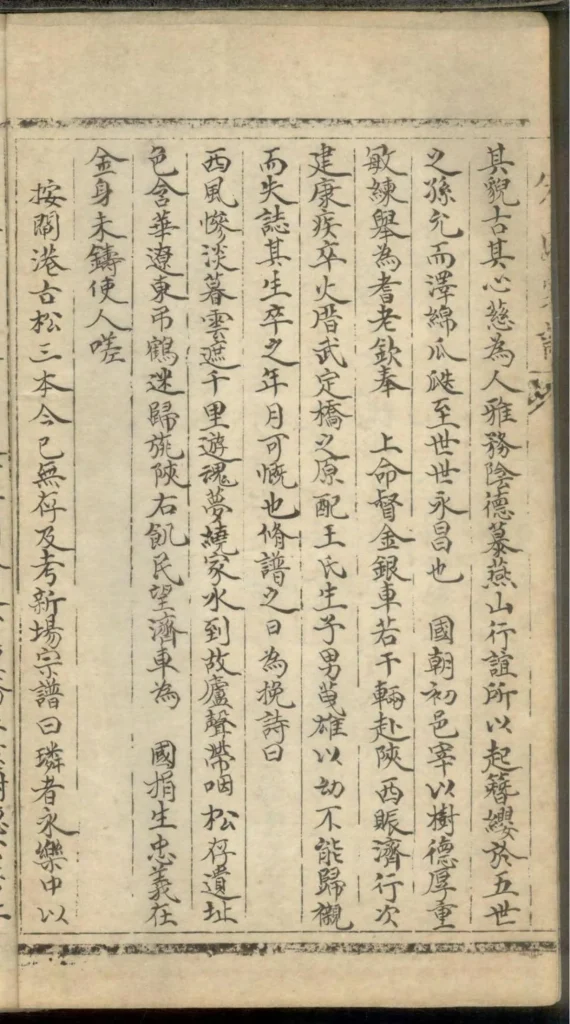 其貌古其心慈為人雅務陰德慕燕山行誼所以起簪纓於五世
之孫元而澤綿瓜瓞至世世永昌也　國朝初邑宰以樹德厚重
敏練舉為耆老欽奉　上命督金銀車若干輛赴陝西賑濟行次
建康疾卒火厝武定橋之原配王氏生子男茂雄以幼不能歸櫬
而失誌其生卒之年月可慨也脩譜之日為挽詩曰
西風慘淡暮雲遮千里遊魂夢繞家水到故廬聲帶咽松存遺址
色含華遼東弔鶴迷歸旐陝右飢民望濟車為　國捐生忠義在
金身未鑄使人嗟
按閣港古松三本今已無存及考新場宗譜曰璘者永樂中以